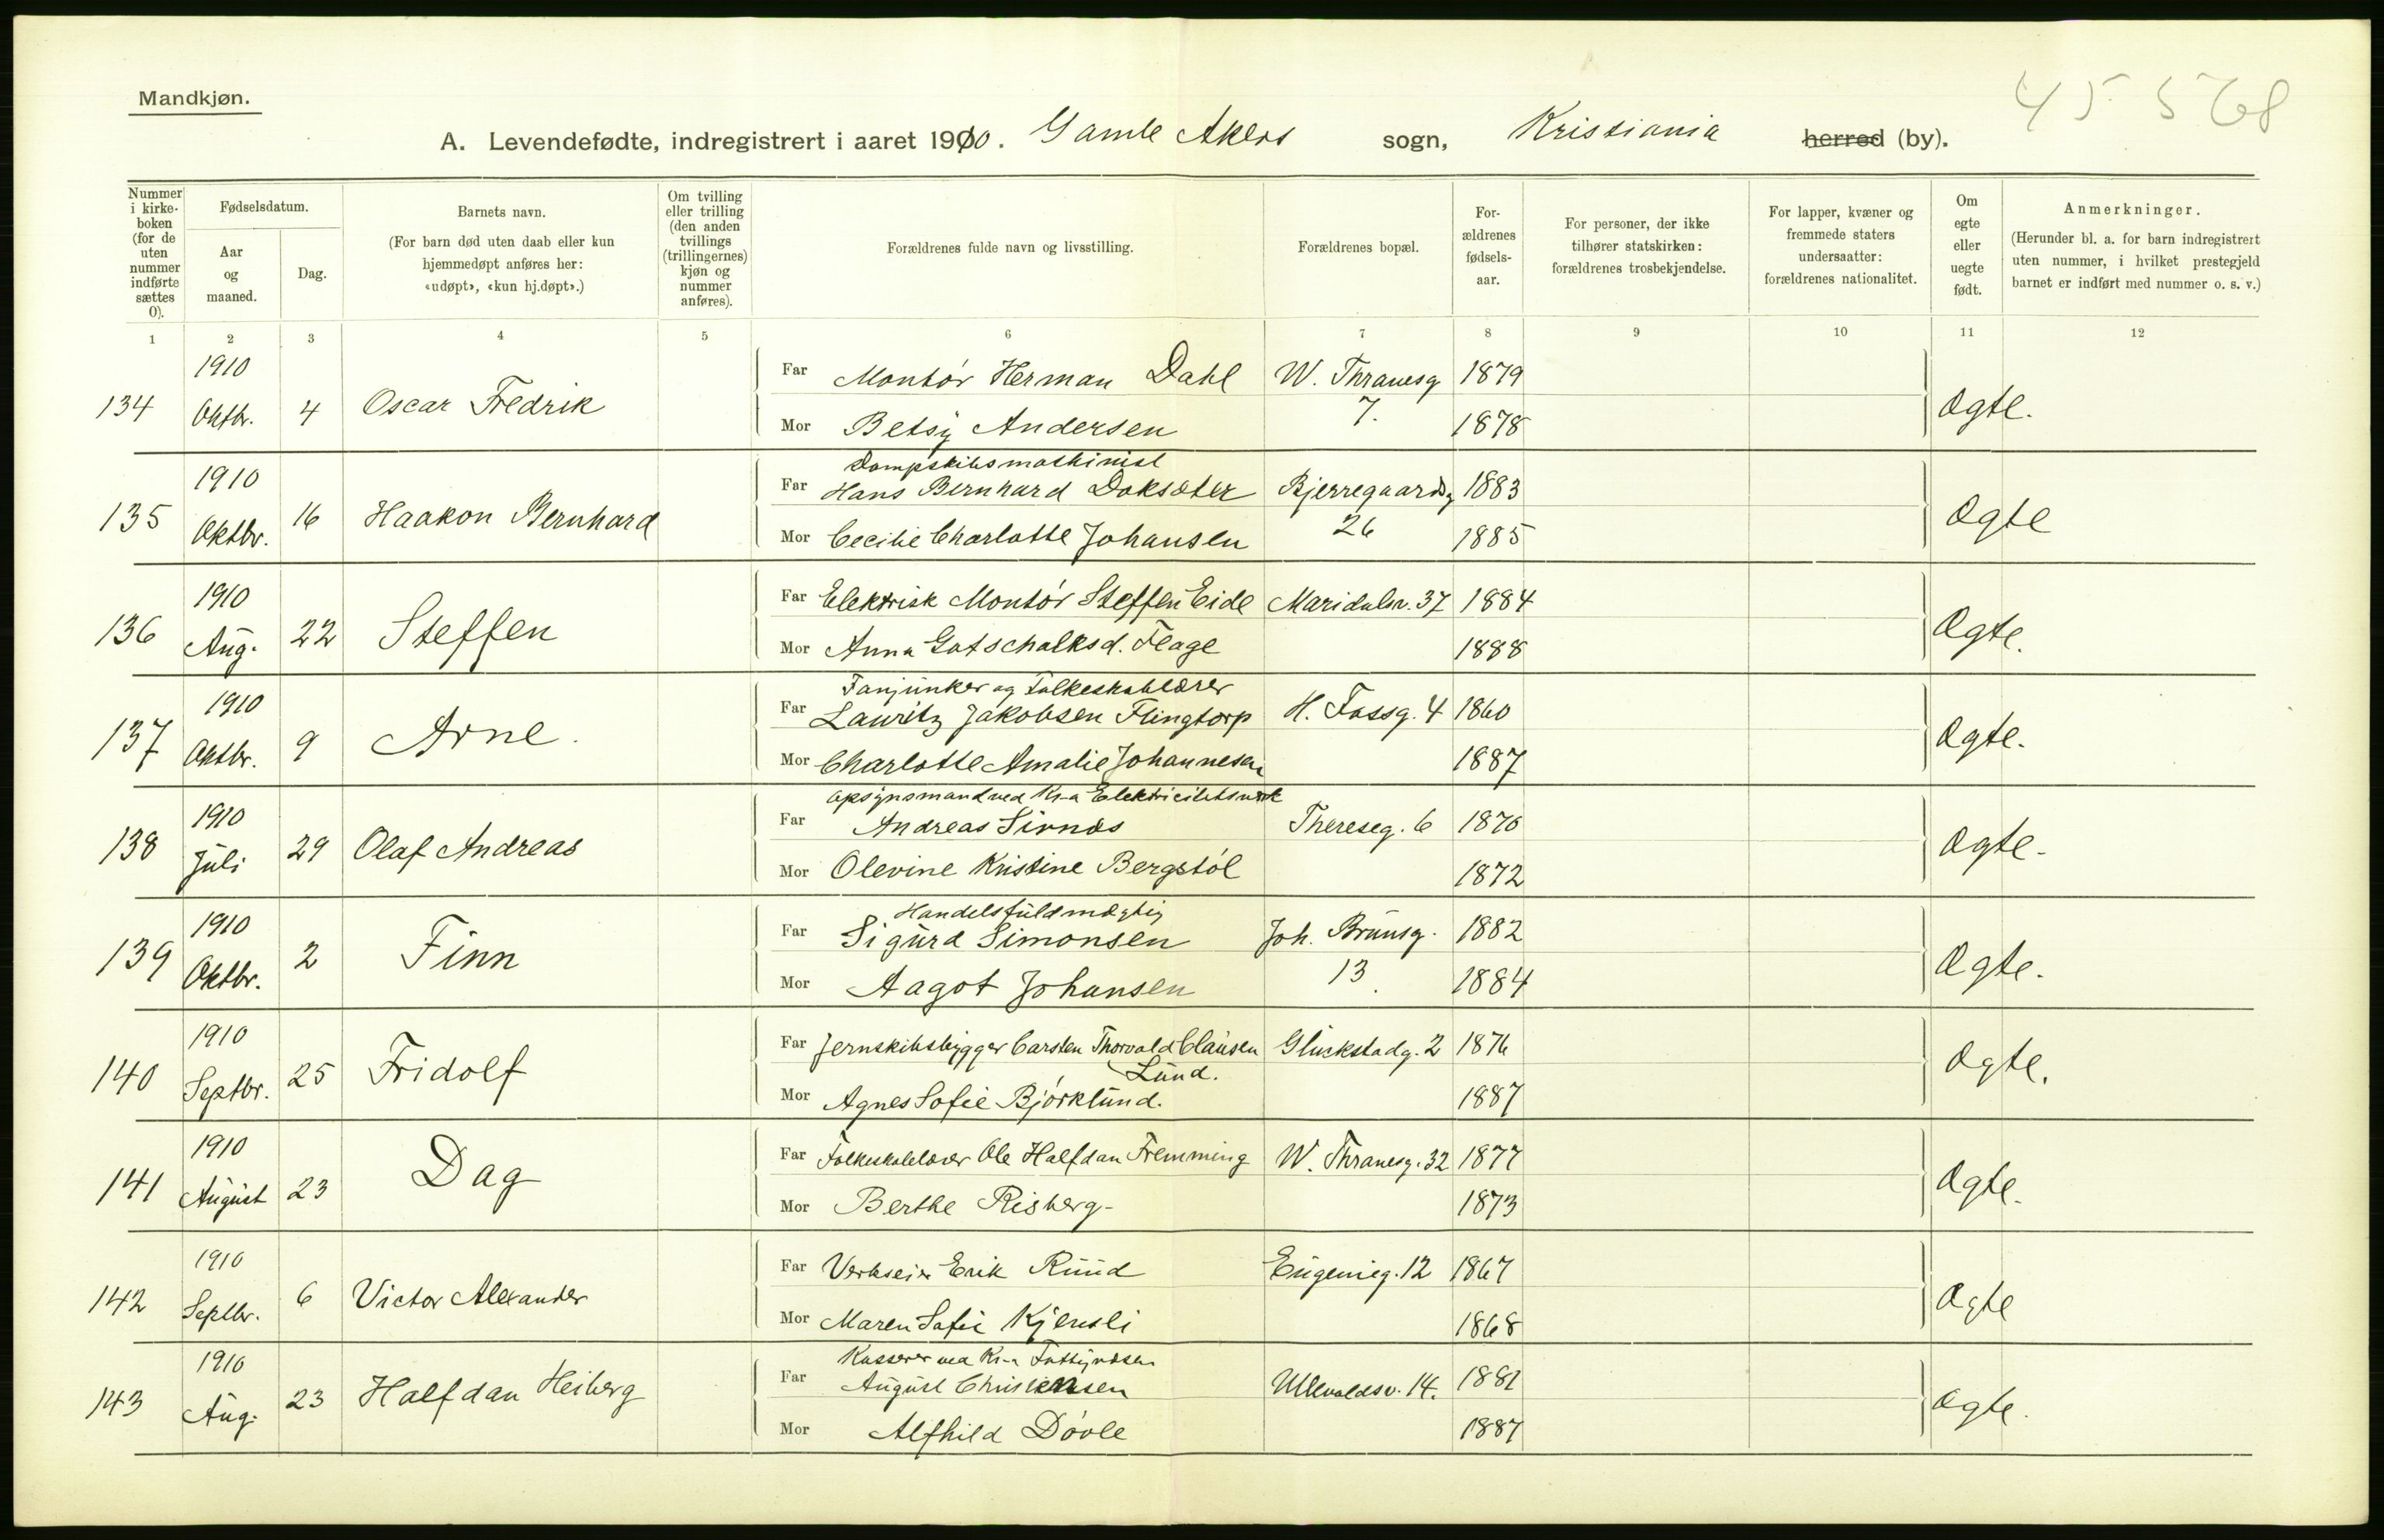 Mandkjøn.
45 568
A. Levendefødte, indregistrert i aaret 1910. Gamle Akers sogn, Kristiania herred (by).
Nummer i kirke-boken (for de uten nummer indførte sættes 0).
Fødselsdatum.
Aar og maaned.
Dag.
Barnets navn.
(For barn død uten daab eller kun hjemmedøpt anføres her: «udøpt», «kun hj.døpt».)
Om tvilling eller trilling (den anden tvillings (trillingernes) kjøn og nummer anføres).
Forældrenes fulde navn og livsstilling.
Forældrenes bopæl.
For-ældrenes fødsels-aar.
For personer, der ikke tilhører statskirken: forældrenes trosbekjendelse.
For lapper, kvæner og fremmede staters undersaatter: forældrenes nationalitet.
Om egte eller uegte født.
Anmerkninger.
(Herunder bl. a. for barn indregistrert uten nummer, i hvilket prestegjeld barnet er indført med nummer o. s. v.)
1 2 3 4 5 6 7 8 9 10 11 12
134 1910 Oktbr. 4 Oscar Fredrik
Far Montör Herman Dahl W. Thranesg 1879
7.
Mor Betsy Andersen 1878
Ægte.
135 1910 Oktbr. 16 Haakon Bernhard
Dampskibsmaskinist
Far Hans Bernhard Doksæter Bjerregaardsg 1883
26
Mor Cecilie Charlotte Johansen 1885
Ægte
136 1910 Aug. 22 Steffen
Far Elektrisk Montör Steffen Eide Maridalsv. 37 1884
Mor Anna Gotschalksd. Flage 1888
Ægte.
137 1910 Oktbr. 9 Arne.
Fanjunker og Folkeskolelærer
Far Lauritz Jakobsen Flingtorp H. Fossg. 4 1860
Mor Charlotte Amalie Johannesen 1887
Ægte.
138 1910 Juli 29 Olaf Andreas
Opsynsmand ved Kr-a Elektricitetsverk
Far Andreas Sirnæs Thereseg. 6 1870
Mor Olevine Kristine Bergstöl 1872
Ægte.
139 1910 Oktbr. 2 Finn
Handelsfuldmægtig
Far Sigurd Simonsen Joh. Brunsg. 1882
13.
Mor Aagot Johansen 1884
Ægte.
140 1910 Septbr. 25 Fridolf
Far Jernskibsbygger Carsten Thorvald Clausen Glückstadg. 2 1876
Lund.
Mor Agnes Sofie Björklund. 1887
Ægte.
141 1910 August 23 Dag
Far Folkeskolelærer Ole Halfdan Fremming W. Thranesg. 32 1877
Mor Berthe Risberg 1873
Ægte.
142 1910 Septbr. 6 Victor Alexander
Far Verkseier Erik Ruud Eugenieg. 12 1867
Mor Maren Sofie Kjensli 1868
Ægte
143 1910 Aug. 23 Halfdan Heiberg
Kasserer ved Kr-a
Far August Christensen Ullevoldsv. 14. 1881
Mor Alfhild Dövle 1887
Ægte.